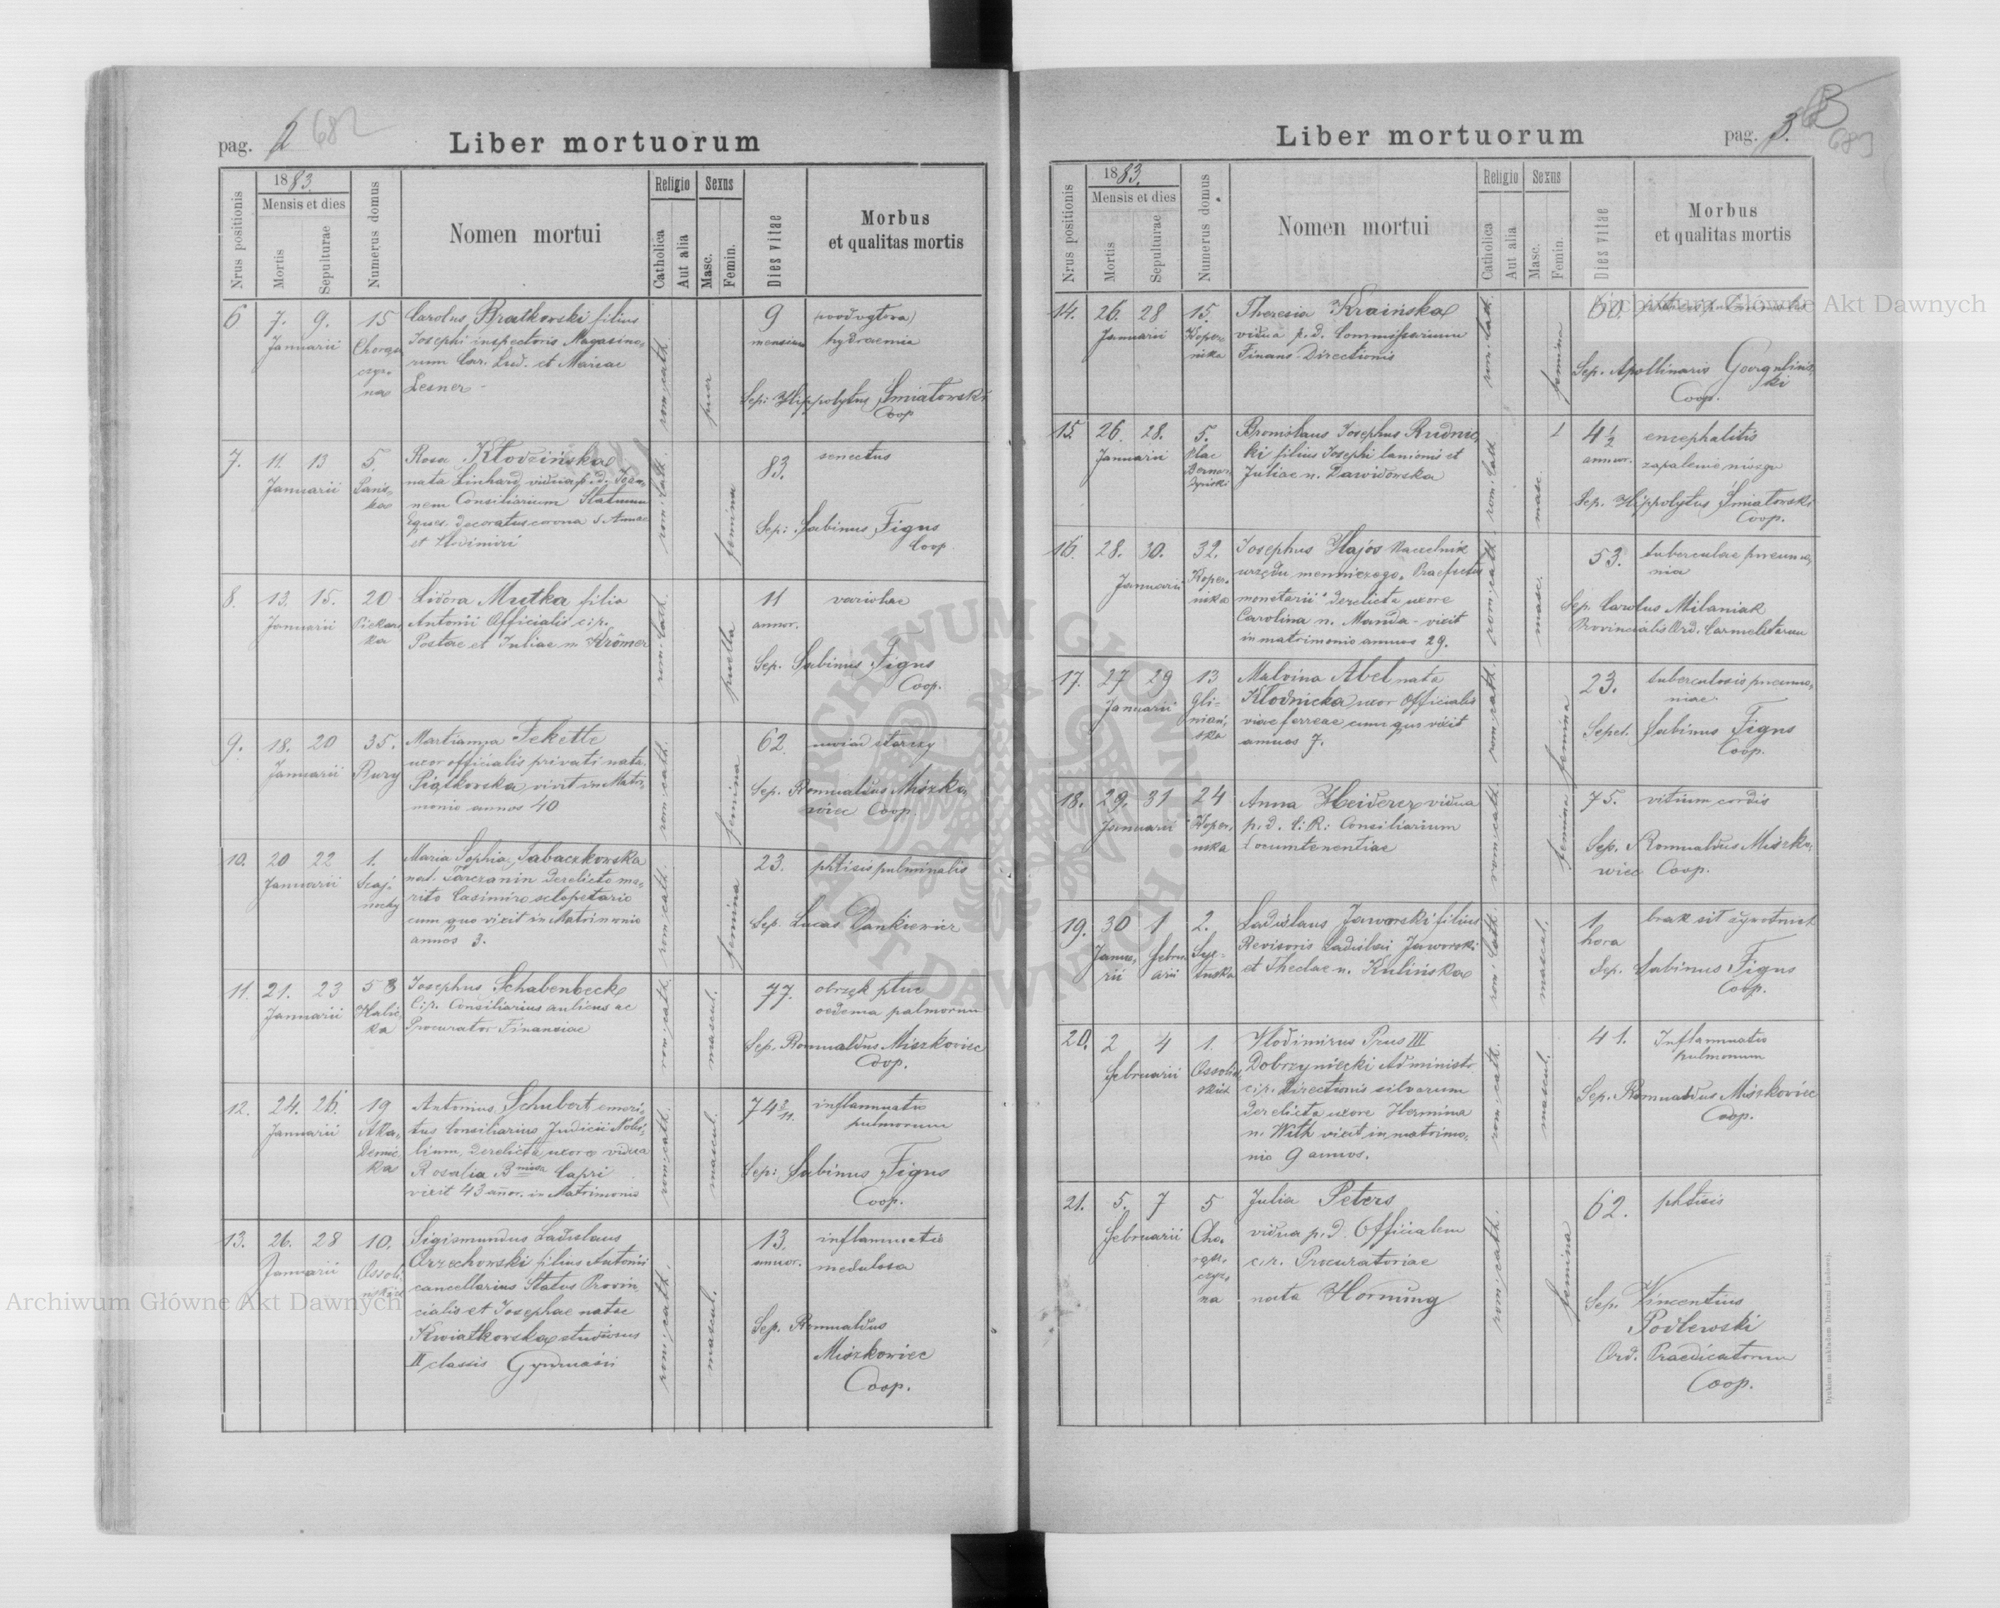 pag. 2 682
Liber mortuorum
Nrus positionis
1883.
Mensis et dies
Mortis
Sepulturae
Numerus domus
Nomen mortui
Religio
Catholica
Aut alia
Sexus
Masc.
Femin.
Dies vitae
Morbus
et qualitas mortis
6 7. 9. 15 Carolus Bratkowski filius 9
Januarii Josephi inspectoris Magasino- mensium hydraemia
rum Car. Lud. et Mariae
na Lesner
rom. cath.
puer
Sep: Hippolytus Smiatowski
Coop
7. 11. 13 5. Rosa Kłodzińska 83. senectus
Januarii nata Linhard, vidua p. d. Joan-
nem Consiliarium Statuum
Eques. decoratus corona S. Annae
et Wlodimiri
rom. cath.
femina
Sep: Sabinus Figus
Coop.
8. 13. 15. 20 Lidora Mutka filia 11 variolae
Januarii Piekar- Antonii Officialis c. r. annor.
ska Postae et Juliae n. Krömer
rom. cath.
puella
Sep. Sabinus Figus
Coop.
9. 18. 20 35. Martianna Fekette 62. uwiąd starczy
Januarii Bury uxor officialis privati nata
Piątkowska, vixit in Matri-
monio annos 40
rom. cath.
femina
Sep. Romualdus Miszko-
wiec Coop.
10. 20 22. 1. Maria Sophia Sabaczkowska 23. phtisis pulminalis
Januarii nat. Tarczanin derelicto ma-
rito Casimiro sclopetario
cum quo vixit in Matrimonio
annos 3.
rom. cath.
femina
Sep. Lucas Dankiewicz
11. 21. 23 58 Josephus Schabenbeck 77. obrzęk płuc
Januarii Halic- C. r. Consiliarius aulicus ac oedema palmorum
ka Procurator Financiae
rom. cath.
mascul.
Sep. Romualdus Miszkowiec
Coop.
12. 24. 26. 19 Antonius Schubert emeri- 74 2/11. inflammatio
Januarii Aka- tus Consiliarius Judicii Nobi- pulmorum
demic- lium, derelicta uxore vidua
ka Rosalia Capri
vixit 43 annor. in Matrimonio
rom. cath.
mascul.
Sep: Sabinus Figus
Coop.
13. 26. 28 10. Sigismundus Ladislaus 13. inflammatio
Januarii Ossoli- Orzechowski filius Antonii annor. medulosa
cancellarius Status Provin-
cialis et Josephae natae
Kwiatkowska studiosus
II classis Gymnasii
rom. cath.
mascul.
Sep. Romualdus
Miszkowiec
Coop.
Liber mortuorum
pag. 3. 683
Nrus positionis
1883.
Mensis et dies
Mortis
Sepulturae
Numerus domus
Nomen mortui
Religio
Catholica
Aut alia
Sexus
Masc.
Femin.
Dies vitae
Morbus
et qualitas mortis
14. 26. 28 15. Theresia Kraińska 60.
Januarii Koper- vidua p. d. Commissarium
nika Finans Directionis
rom. cath.
Sep. Apollinaris
Coop.
15. 26. 28. 5. Bronislaus Josephus Rudnic- 4 1/2 encephalitis
Januarii Plac ki filius Josephi lanioni et annor. zapalenie mózgu
Juliae n. Dawidowska
rom. cath.
masc.
Sep. Hippolytus Smiatowski
Coop.
16. 28. 30. 32. Josephus Hajós Naczelnik 53. tuberculae pneumo-
Januarii Koper- urzędu menniczego. Praefectus nia
nika monetarii derelicta uxore
Carolina n. Manda - vixit
in matrimonio annos 29.
rom. cath.
masc.
Sep. Carolus Milaniak
Provincialis Ord. Carmelitarum
17. 27 29 13 Malvina Abel nata 23. tuberculosis pneumo-
Januarii Gli- Kłodnicka uxor Officialis niae
nian- viae ferreae cum quo vixit
ska annos 7.
rom. cath.
femina
Sepel. Sabinus Figus
Coop.
18. 29. 31 24 Anna Heiderer vidua 75. vitium cordis
Januarii Koper- p. d. C. R. Consiliarium
nika Locumtenentiae
rom. cath.
femina
Sep. Romualdus Miszko-
wiec Coop.
19. 30 1 2. Ladislaus Jaworski filius 1
Janua- Febru- Revisoris Ladislai Jaworski hora
rii arii et Theclae n. Kulińska
rom. cath.
mascul.
Sep. Sabinus Figus
Coop.
20. 2 4 1. Wlodimirus Prus III 41. Inflammatio
Februarii Dobrzyniecki Administr. pulmonum
c. r. Directionis silvarum
derelicta uxore Hermina
n. With vixit in matrimo-
nio 9 annos.
rom. cath.
mascul.
Sep. Romualdus Miszkowiec
Coop.
21. 5. 7 5 Julia Peters 62. phtisis
Februarii Cho- vidua p. d. Officialem
c. r. Procuratoriae
na nata Hornung
rom. cath.
femina
Sep. Vincentius
Podlewski
Ord. Praedicatorum
Coop.
Archiwum Główne Akt Dawnych
Archiwum Główne Akt Dawnych
ARCHIWUM GŁÓWNE AKT DAWNYCH